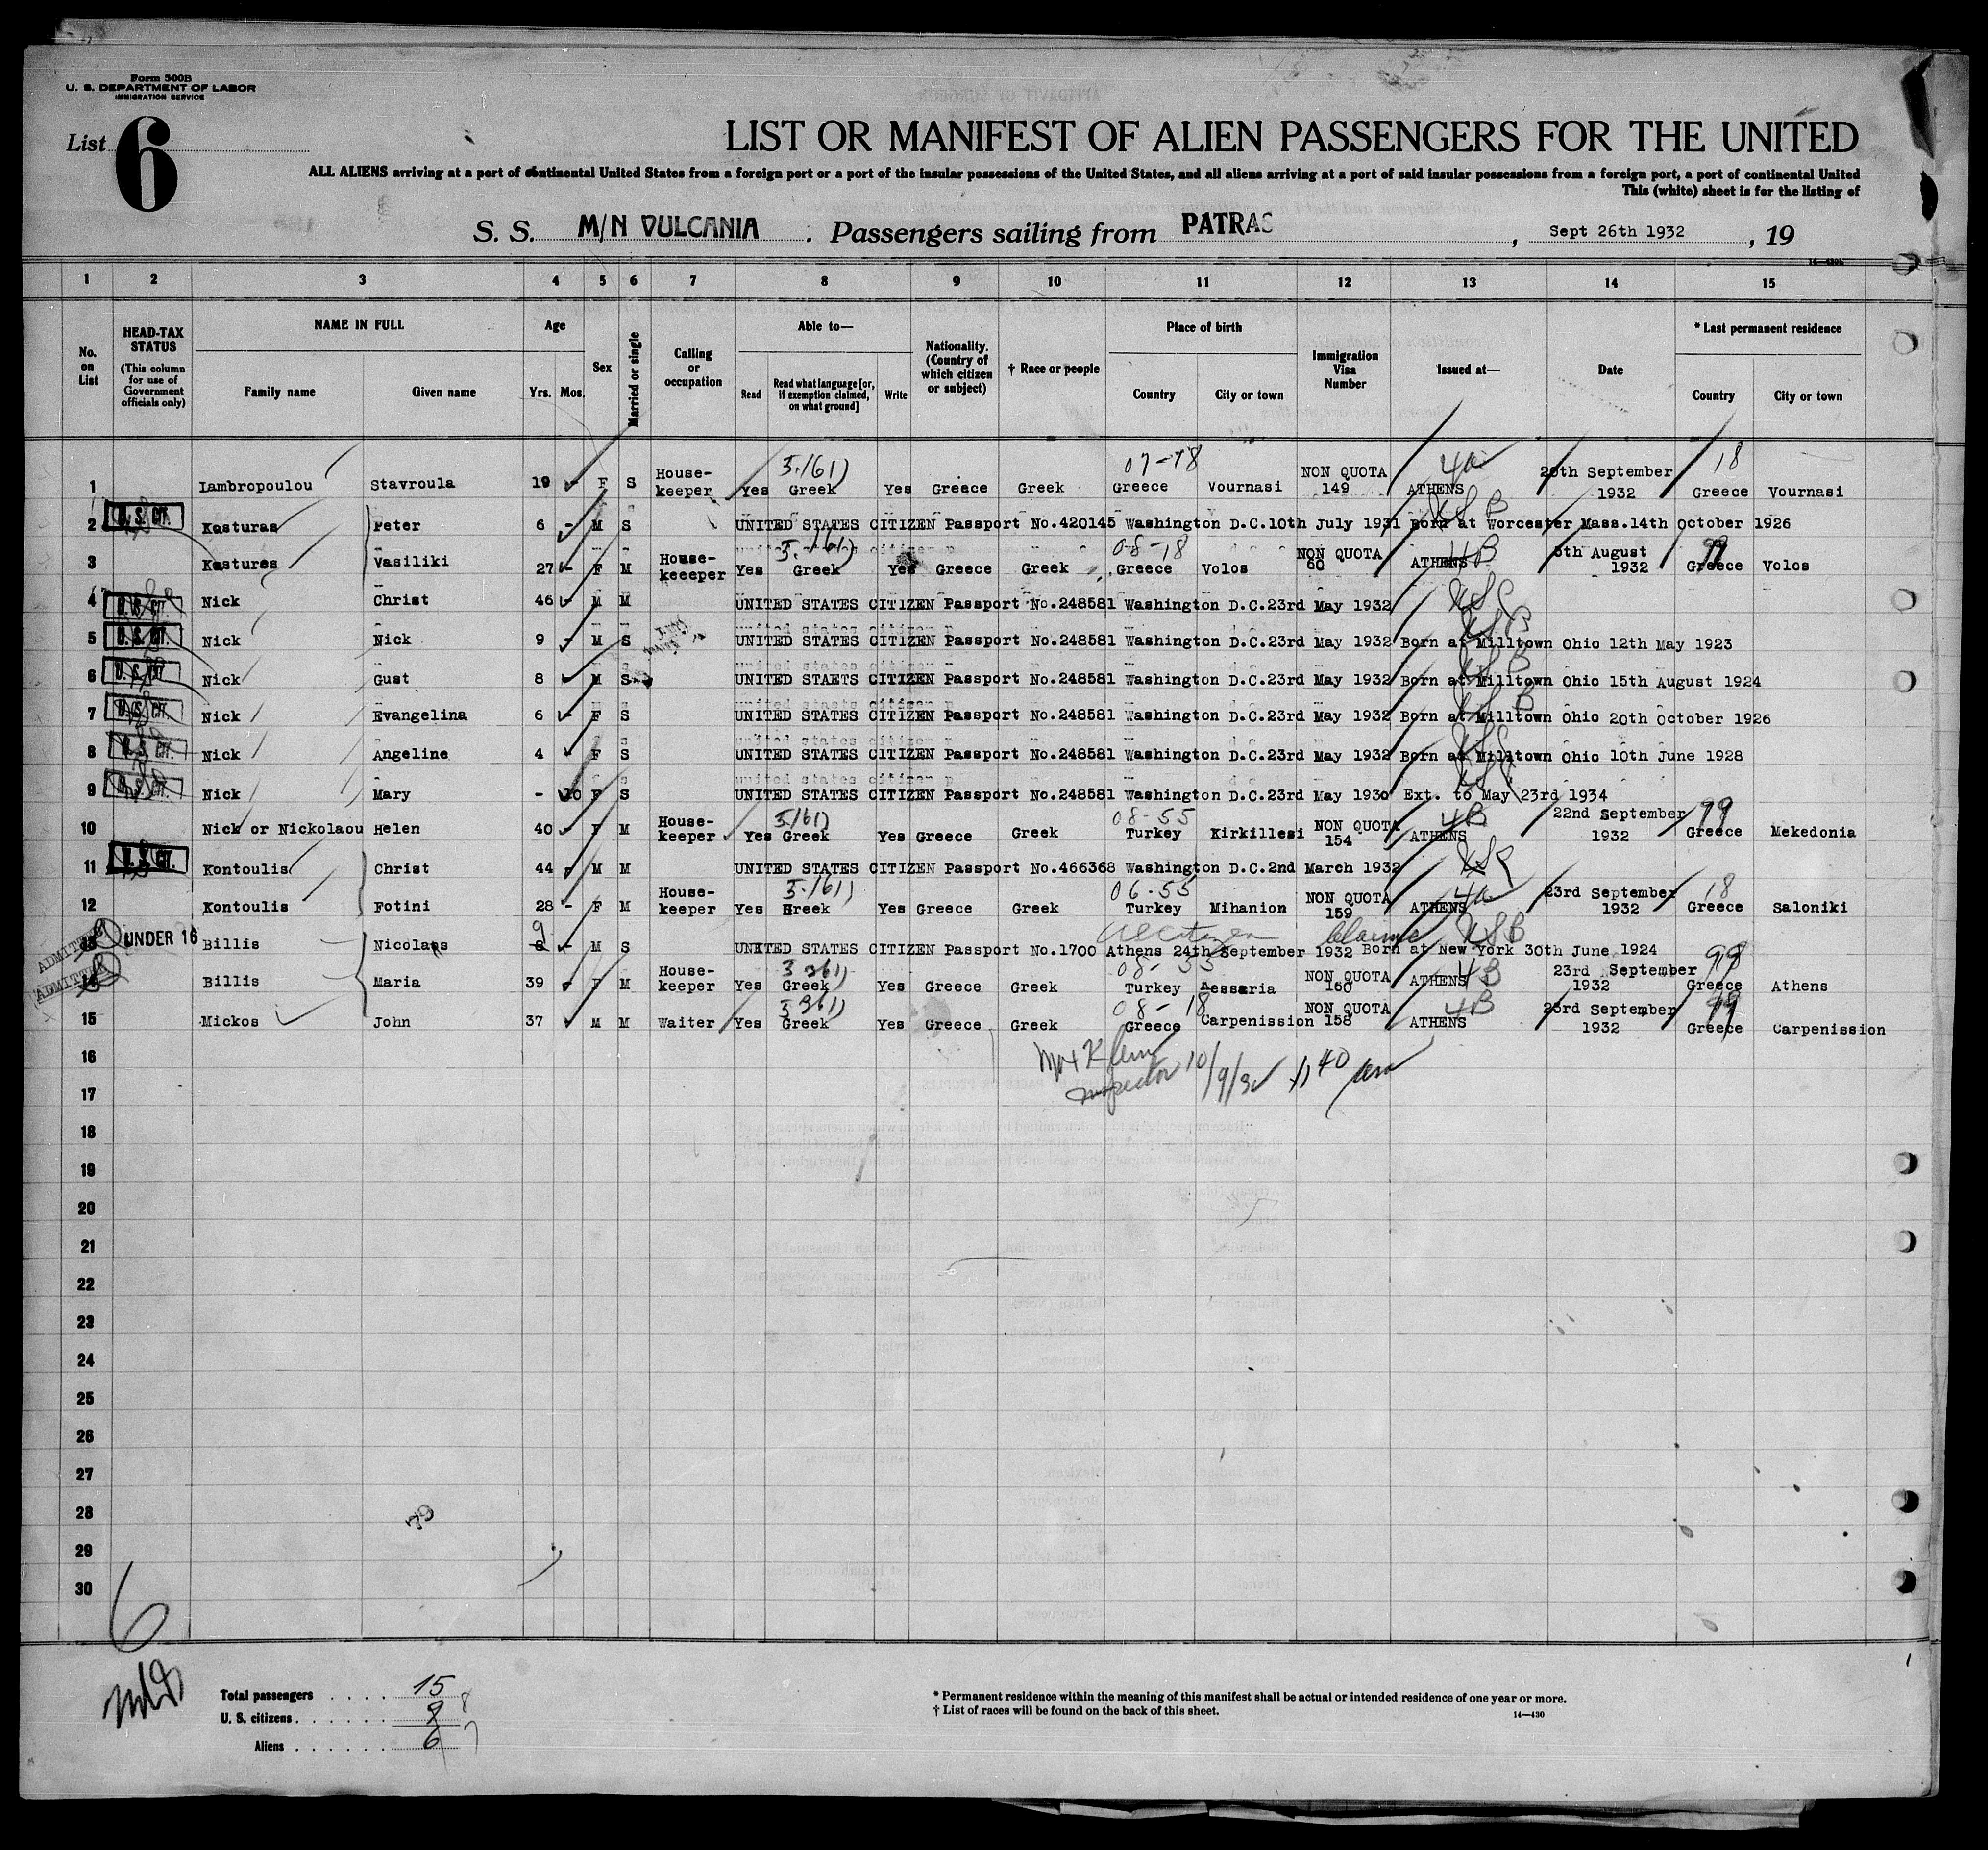 Form 500B
U. S. DEPARTMENT OF LABOR
IMMIGRATION SERVICE
List 6
LIST OR MANIFEST OF ALIEN PASSENGERS FOR THE UNITED
ALL ALIENS arriving at a port of continental United States from a foreign port or a port of the insular possessions of the United States, and all aliens arriving at a port of said insular possessions from a foreign port, a port of continental United
This (white) sheet is for the listing of
S. S. M/N VULCANIA . Passengers sailing from PATRAS , Sept 26th 1932 , 19
1 2 3 4 5 6 7 8 9 10 11 12 13 14 15
No. on List
HEAD-TAX STATUS (This column for use of Government officials only)
NAME IN FULL Family name Given name
Age Yrs. Mos.
Sex
Married or single
Calling or occupation
Able to— Read Read what language [or, if exemption claimed, on what ground] Write
Nationality. (Country of which citizen or subject)
† Race or people
Place of birth Country City or town
Immigration Visa Number
Issued at—
Date
* Last permanent residence Country City or town
5/61) 07-78 4a 18
1 Lambropoulou Stavroula 19 - F S House-keeper Yes Greek Yes Greece Greek Greece Vournasi NON QUOTA 149 ATHENS 20th September 1932 Greece Vournasi
2 U. S. CIT. Kasturas Peter 6 - M S UNITED STATES CITIZEN Passport No.420145 Washington D.C.10th July 1931 Born at Worcester Mass.14th October 1926
5/61) 08-18 4B 99
3 Kastures Vasiliki 27 - F M House-keeeper Yes Greek Yes Greece Greek Greece Volos NON QUOTA 60 ATHENS 5th August 1932 Greece Volos
4 U. S. CIT. Nick Christ 46 M M UNITED STATES CITIZEN Passport No.248581 Washington D.C.23rd May 1932
5 U. S. CIT. Nick Nick 9 - M S UNITED STATES CITIZEN Passport No.248581 Washington D.C.23rd May 1932 Born at Milltown Ohio 12th May 1923
6 U. S. CIT. Nick Gust 8 M S UNITED STAETS CITIZEN Passport No.248581 Washington D.C.23rd May 1932 Born at Milltown Ohio 15th August 1924
7 U. S. CIT. Nick Evangelina 6 - F S UNITED STATES CITIZEN Passport No.248581 Washington D.C.23rd May 1932 Born at Milltown Ohio 20th October 1926
8 U. S. CIT. Nick Angeline 4 F S UNITED STATES CITIZEN Passport No.248581 Washington D.C.23rd May 1932 Born at Milltown Ohio 10th June 1928
9 U. S. CIT. Nick Mary - 10 F S UNITED STATES CITIZEN Passport No.248581 Washington D.C.23rd May 1930 Ext. to May 23rd 1934
5/61) 08-55 4B 99
10 Nick or Nickolaou Helen 40 F M House-keeper Yes Greek Yes Greece Greek Turkey Kirkillesi NON QUOTA 154 ATHENS 22nd September 1932 Greece Mekedonia
11 U. S. CIT. Kontoulis Christ 44 - M M UNITED STATES CITIZEN Passport No.466368 Washington D.C.2nd March 1932
5/61) 06-55 4a 18
12 Kontoulis Fotini 28 - F M House-keeper Yes Greek Yes Greece Greek Turkey Mihanion NON QUOTA 159 ATHENS 23rd September 1932 Greece Saloniki
ADMITTED 13 UNDER 16 Billis Nicolaos 8 9 - M S UNITED STATES CITIZEN Passport No.1700 Athens 24th September 1932 Born at New York 30th June 1924
USB
ADMITTED 14 Billis Maria 39 - F M House-keeper Yes Greek Yes Greece Greek Turkey NON QUOTA 160 ATHENS 4B 23rd September 1932 Greece 99 Athens
08-18 4B 99
15 Mickos John 37 M M Waiter Yes Greek Yes Greece Greek Greece Carpenission NON QUOTA 158 ATHENS 23rd September 1932 Greece Carpenission
16
Inspector 10/9/32 11 40 am
17
18
19
20
21
22
23
24
25
26
27
28
29
30
6
Total passengers . . . . 15
U. S. citizens . . . . . . 9 8
Aliens . . . . . . 6 7
* Permanent residence within the meaning of this manifest shall be actual or intended residence of one year or more.
† List of races will be found on the back of this sheet.
14—430